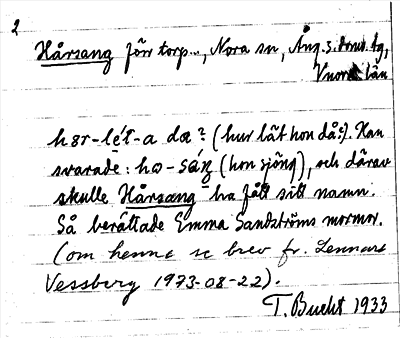 2
Hårsang förr torp.., Nora sn, Ång. s. doms. tg,
Vnorrl. län
hɶr-lę́t-a dæ? (hur lät hon då?). Han
svarade: hɷ-sáŋ (hon sjöng), och därav
skulle Hårsang ha fått sitt namn.
Så berättade Emma Sandströms mormor.
(om henne se brev fr. Lennart
Vessberg 1973-08-22).
T. Bucht 1933